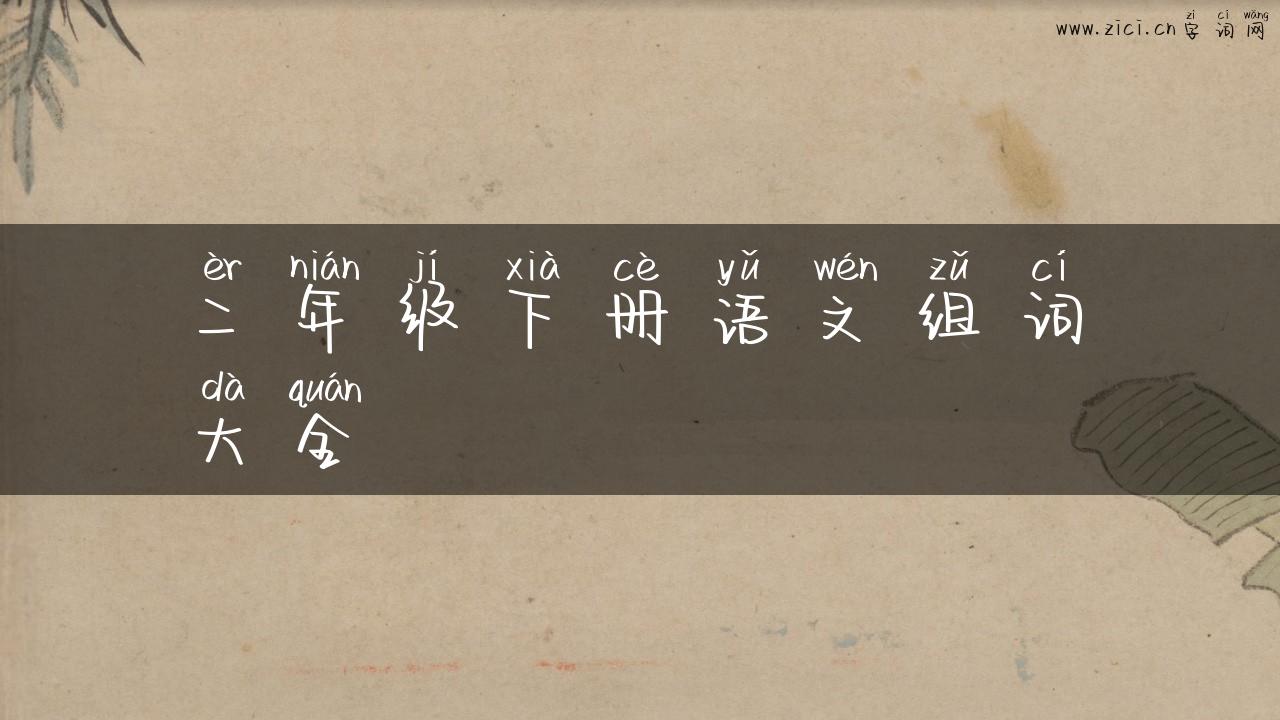 zì cí wǎng
www.zici.cn 字词网
èr nián jí xià cè yǔ wén zǔ cí
二年级下册语文组词
dà quán
大全